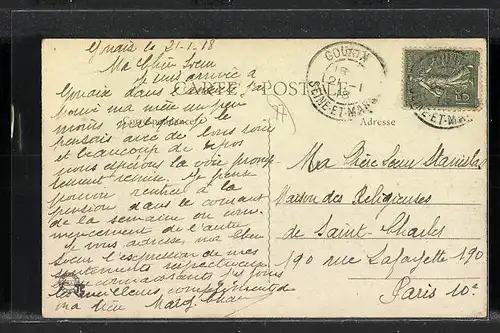 Gouaix le 21-1-18
Ma Chère Soeur
Je suis arrivée à
Gouaix dans
trouvé ma mère un peu
moins
pensais avec de bons soins
et beaucoup de repos
nous espérons la voir promp
tement remise. Je pense
pouvoir rentrer à la
pension dans le courant
de la semaine ou com
mencement de l'autre
Je vous adresse, ma Chère
Soeur l'expression de mes
sentiments respectueux
et
ma Mère Marg.
CARTE POSTALE
Correspondance
Adresse
GOUAIX
21-1
18
SEINE-ET-MARNE
15
Ma Chère Soeur Stanislas
Maison des Religieuses
de Saint-Charles
190 rue Lafayette 190
Paris 10e